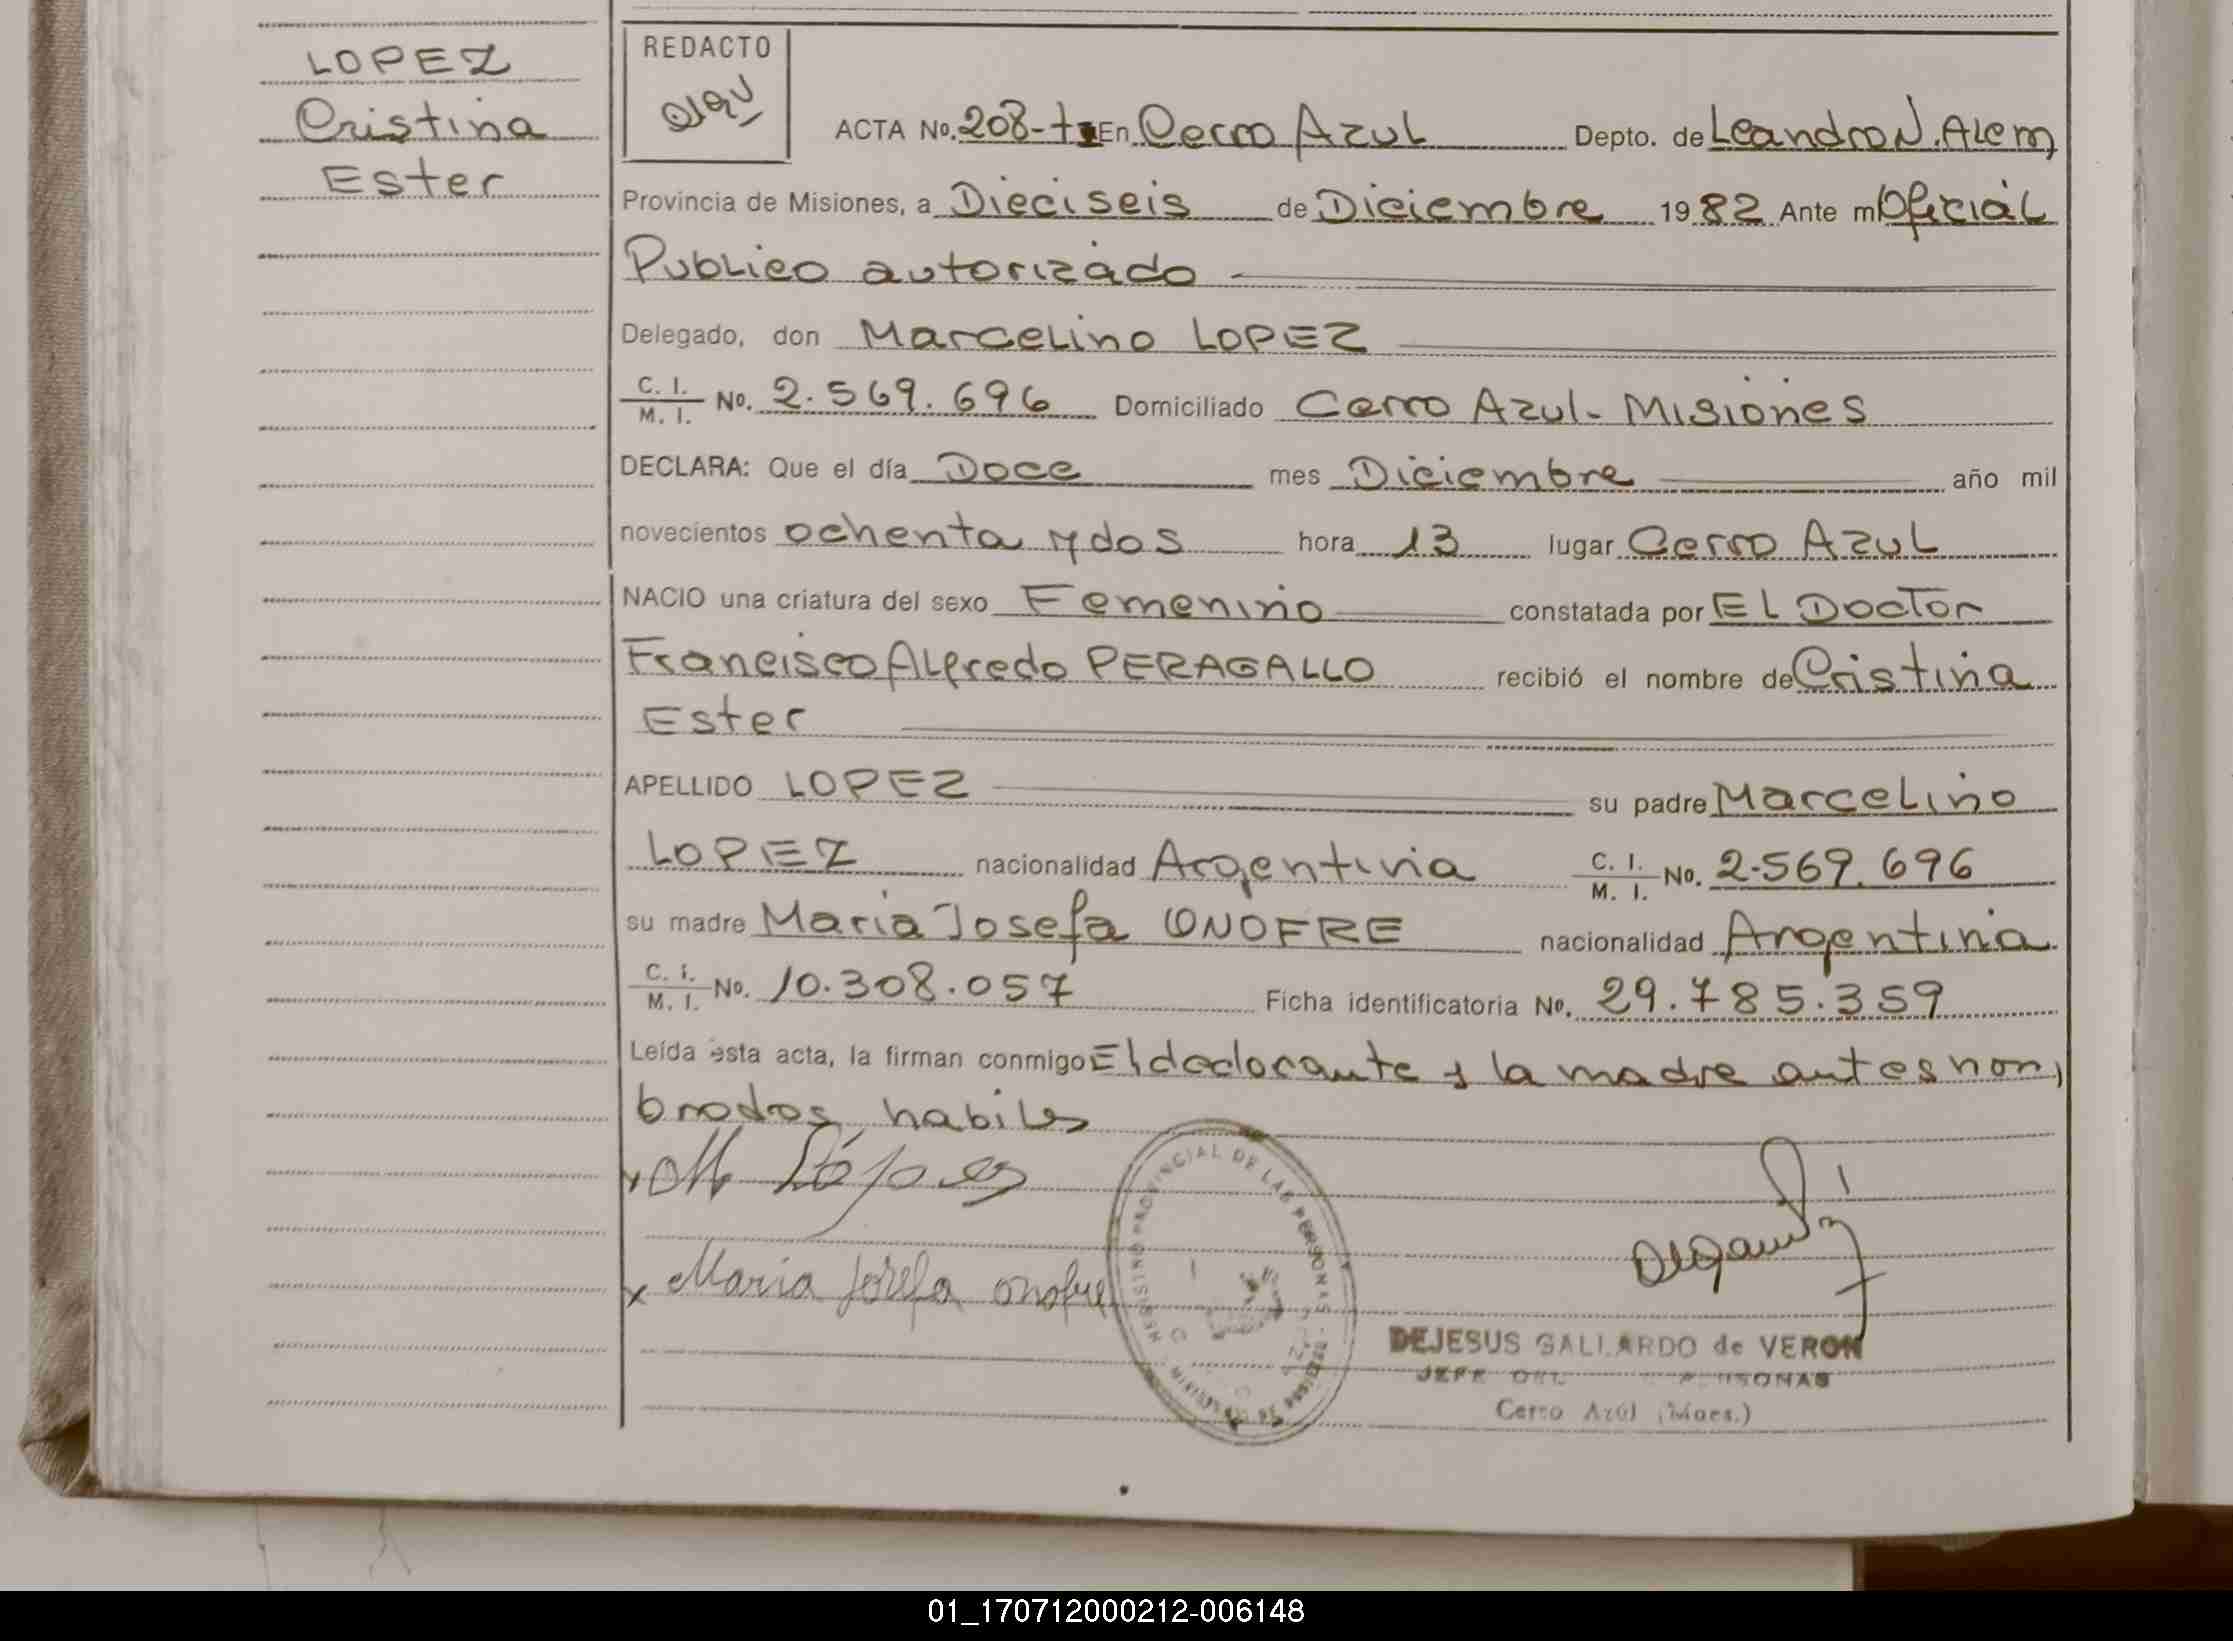 LOPEZ
Cristina
Ester
REDACTO
ACTA No. 208-t En Cerro Azul Depto. de Leandro N. Alem
Provincia de Misiones, a Dieciseis de Diciembre 1982 Ante mi Oficial
Publico autorizado
Delegado, don Marcelino LOPEZ
C. I.
M. I. No. 2.569.696 Domiciliado Cerro Azul - Misiones
DECLARA: Que el día Doce mes Diciembre año mil
novecientos ochenta y dos hora 13 lugar Cerro Azul
NACIO una criatura del sexo Femenino constatada por El Doctor
Francisco Alfredo PERAGALLO recibió el nombre de Cristina
Ester
APELLIDO LOPEZ su padre Marcelino
LOPEZ nacionalidad Argentina C. I.
M. I. No. 2.569.696
su madre Maria Josefa ONOFRE nacionalidad Argentina.
C. I.
M. I. No. 10.308.057 Ficha identificatoria No. 29.785.359
Leída esta acta, la firman conmigo El declarante y la madre antes nom
brados habiles
x M López
x Maria Josefa Onofre
PROVINCIAL DE LAS PERSONAS
DEJESUS GALLARDO de VERON
JEFE DEL PERSONAS
Cerro Azul (Mnes.)
01_170712000212-006148